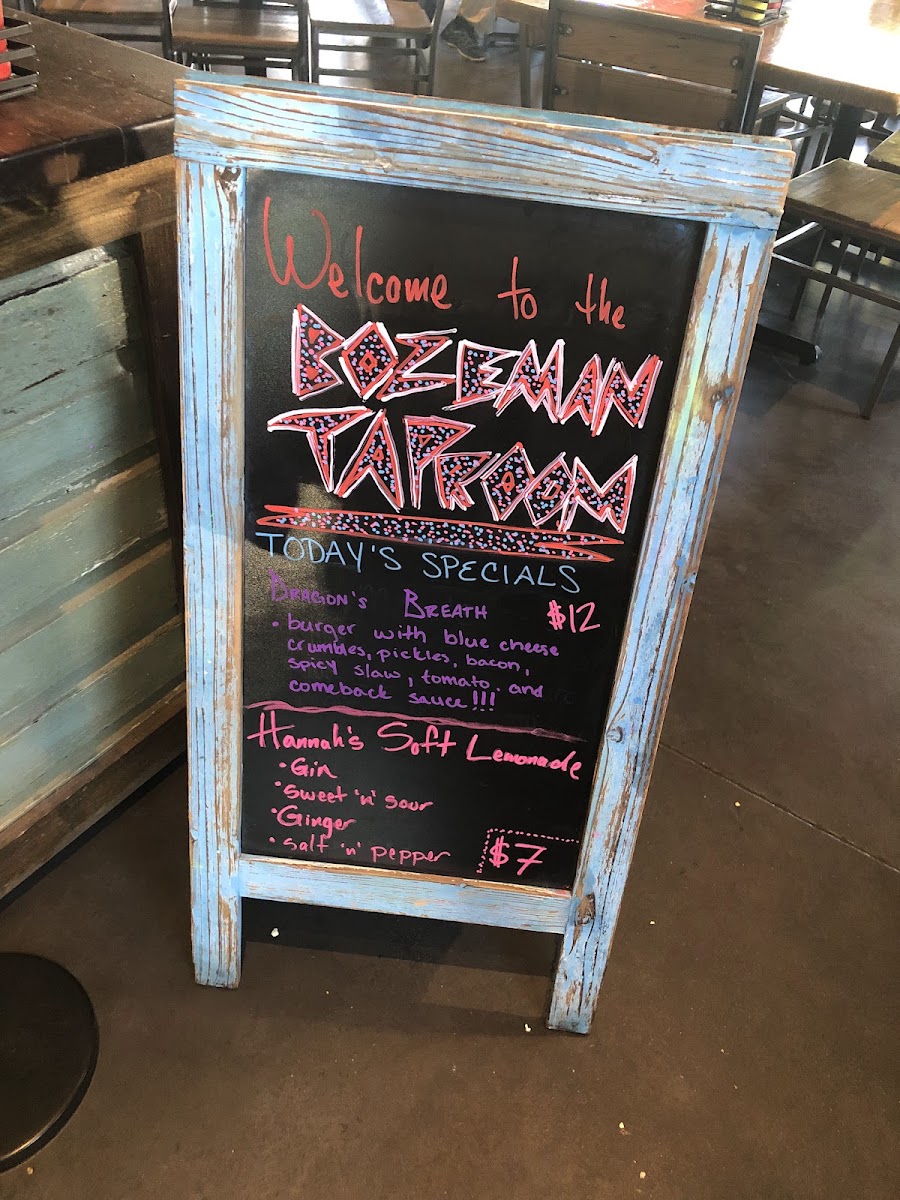 Welcome to the
BOZEMAN
TAPROOM
TODAY'S SPECIALS
DRAGON'S BREATH $12
• burger with blue cheese
crumbles, pickles, bacon,
spicy slaw, tomato and
comeback sauce!!!
Hannah's Soft Lemonade
• Gin
• Sweet 'n' sour
• Ginger
• salt 'n' pepper $7